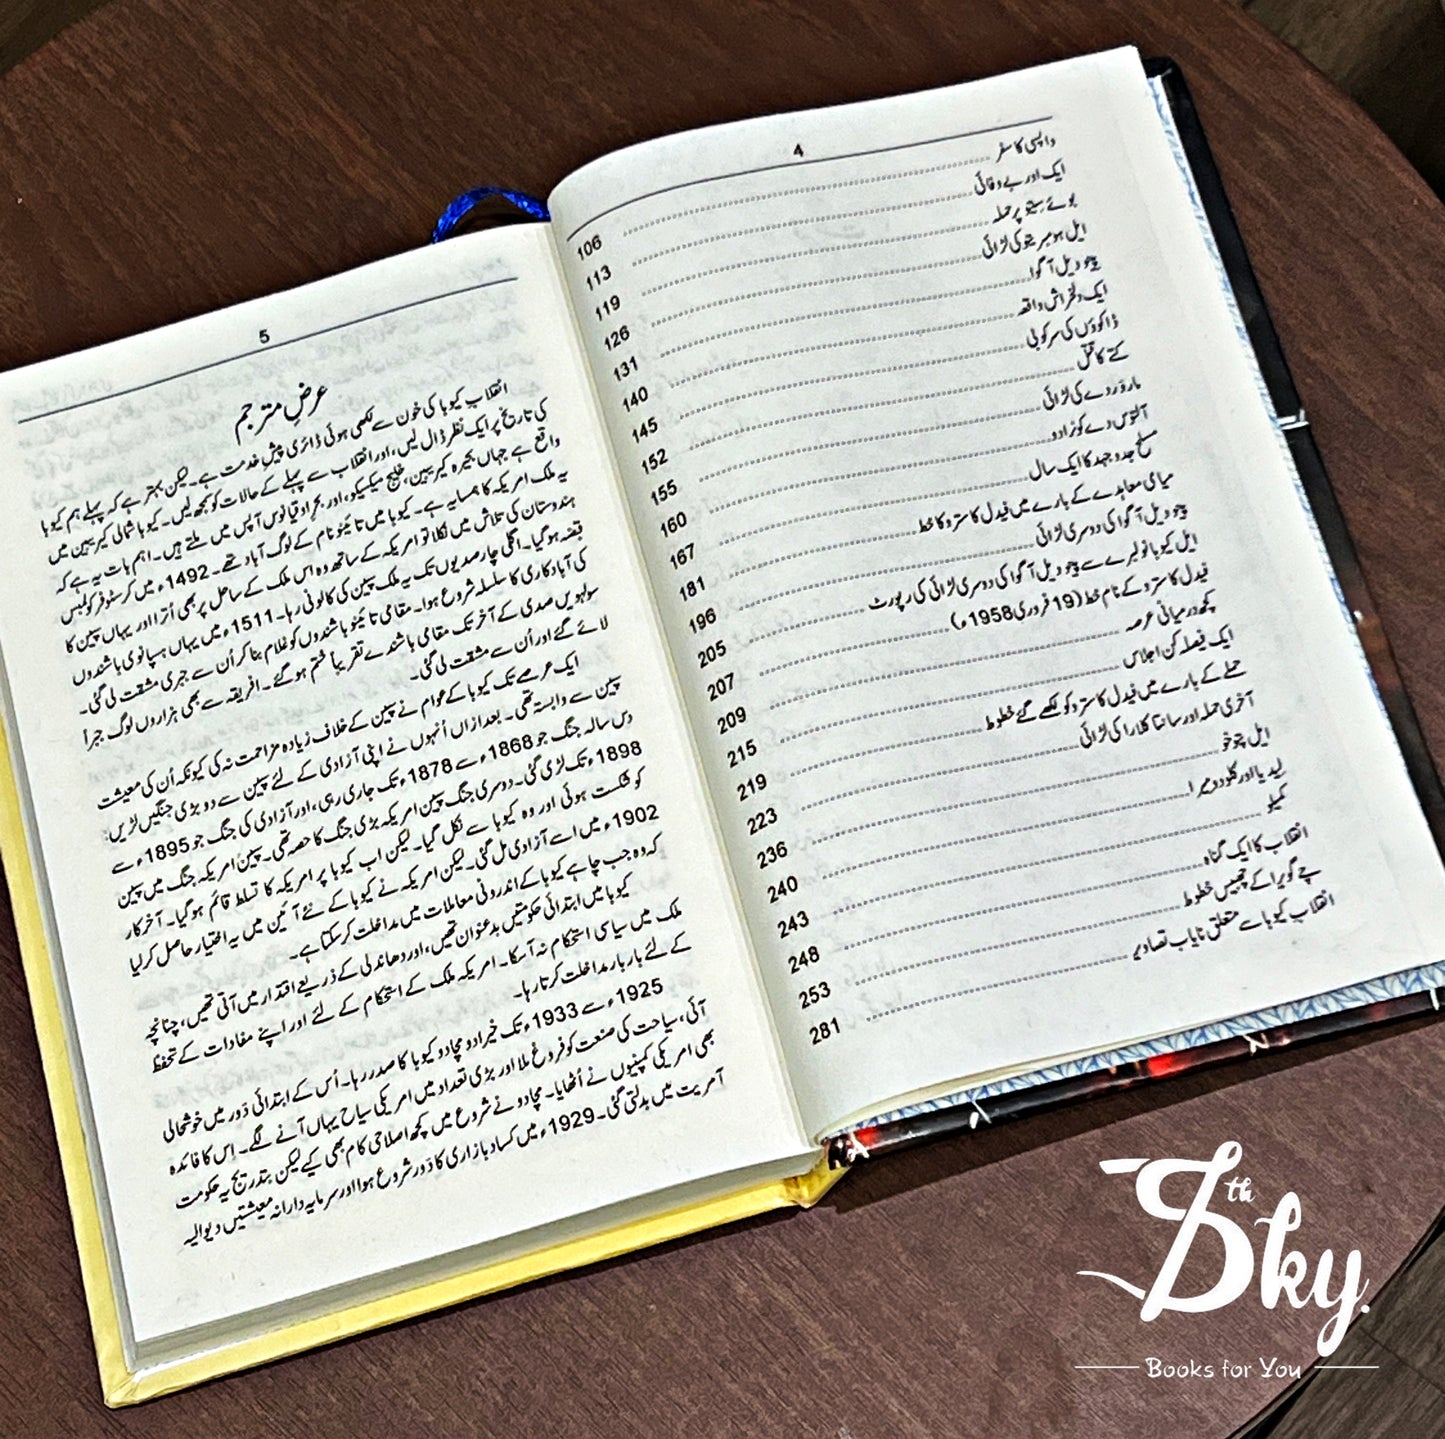 4
واپسی کا سفر ........ 106
ایک اور بے وفائی ........ 113
بوئے سیتو پر حملہ ........ 119
ایل ہومبریتو کی لڑائی ........ 126
پینو دیل آگوا ........ 131
ایک دلخراش واقعہ ........ 140
ڈاکوؤں کی سرکوبی ........ 145
کتے کا قتل ........ 152
مار وردے کی لڑائی ........ 155
آلتوس دے کونرادو ........ 160
مسلح جدوجہد کا ایک سال ........ 167
میامی معاہدے کے بارے میں فیدل کاسترو کا خط ........ 181
پینو دیل آگوا کی دوسری لڑائی ........ 196
ایل کیوبانو لبرے سے پینو دیل آگوا کی دوسری لڑائی کی رپورٹ ........ 205
فیدل کاسترو کے نام خط (19 فروری 1958ء) ........ 207
کچھ درمیانی عرصہ ........ 209
ایک فیصلہ کن اجلاس ........ 215
حملے کے بارے میں فیدل کاسترو کو لکھے گئے خطوط ........ 219
آخری حملہ اور سانتا کلارا کی لڑائی ........ 223
ایل پتوخو ........ 236
لیدیا اور کلودومیرا ........ 240
........ 243
انقلاب کا ایک گناہ ........ 248
چے گویرا کے چھبیس خطوط ........ 253
انقلاب کیوبا سے متعلق نایاب تصاویر ........ 281
5
عرضِ مترجم
انقلاب کیوبا کی خون سے لکھی ہوئی ڈائری پیشِ خدمت ہے۔ لیکن بہتر ہے کہ پہلے ہم کیوبا
کی تاریخ پر ایک نظر ڈال لیں، اور انقلاب سے پہلے کے حالات کو سمجھ لیں۔ کیوبا شمالی کیریبین میں
واقع ہے جہاں بحیرہ کیریبین، خلیج میکسیکو، اور بحرِ اوقیانوس آپس میں ملتے ہیں۔ اہم بات یہ ہے کہ
یہ ملک امریکہ کا ہمسایہ ہے۔ کیوبا میں تائینو نام کے لوگ آباد تھے۔ 1492ء میں کرسٹوفر کولمبس
ہندوستان کی تلاش میں نکلا تو امریکہ کے ساتھ وہ اس ملک کے ساحل پر بھی اُترا اور یہاں سپین کا
قبضہ ہوگیا۔ اگلی چار صدیوں تک یہ ملک سپین کی کالونی رہا۔ 1511ء میں یہاں ہسپانوی باشندوں
کی آباد کاری کا سلسلہ شروع ہوا۔ مقامی تائینو باشندوں کو غلام بنا کر اُن سے جبری مشقت لی گئی۔
سولہویں صدی کے آخر تک مقامی باشندے تقریباً ختم ہوگئے۔ افریقہ سے بھی ہزاروں لوگ جبراً
لائے گئے اور اُن سے مشقت لی گئی۔
ایک عرصے تک کیوبا کے عوام نے سپین کے خلاف زیادہ مزاحمت نہ کی کیونکہ اُن کی معیشت
سپین سے وابستہ تھی۔ بعدازاں اُنہوں نے اپنی آزادی کے لئے سپین سے دو بڑی جنگیں لڑیں:
دس سالہ جنگ جو 1868ء سے 1878ء تک جاری رہی، اور آزادی کی جنگ جو 1895ء سے
1898ء تک لڑی گئی۔ دوسری جنگ سپین امریکہ بڑی جنگ کا حصہ تھی۔ سپین امریکہ جنگ میں سپین
کو شکست ہوئی اور وہ کیوبا سے نکل گیا۔ لیکن اب کیوبا پر امریکہ کا تسلط قائم ہوگیا۔ آخرکار
1902ء میں اسے آزادی مل گئی۔ لیکن امریکہ نے کیوبا کے نئے آئین میں یہ اختیار حاصل کرلیا
کہ وہ جب چاہے کیوبا کے اندرونی معاملات میں مداخلت کرسکتا ہے۔
کیوبا میں ابتدائی حکومتیں بدعنوان تھیں، اور دھاندلی کے ذریعے اقتدار میں آتی تھیں، چنانچہ
ملک میں سیاسی استحکام نہ آسکا۔ امریکہ ملک کے استحکام کے لئے اور اپنے مفادات کے تحفظ
کے لئے بار بار مداخلت کرتا رہا۔
1925ء سے 1933ء تک خیرادو مچادو کیوبا کا صدر رہا۔ اُس کے ابتدائی دَور میں خوشحالی
آئی، سیاحت کی صنعت کو فروغ ملا اور بڑی تعداد میں امریکی سیاح یہاں آنے لگے۔ اِس کا فائدہ
بھی امریکی کمپنیوں نے اُٹھایا۔ مچادو نے شروع میں کچھ اصلاحی کام بھی کیے لیکن بتدریج یہ حکومت
آمریت میں بدلتی گئی۔ 1929ء میں کساد بازاری کا دَور شروع ہوا اور سرمایہ دارانہ معیشتیں دیوالیہ
7th Sky.
Books for You